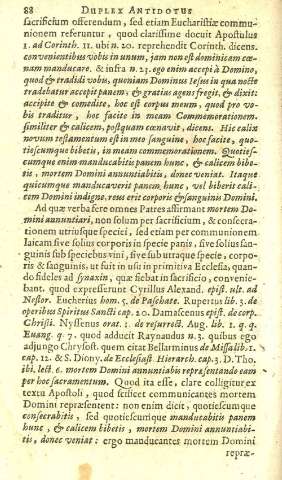 88 DUPLEX ANTIDOTUS
sacrificium offerendum, sed etiam Eucharistiæ commu-
nionem referuntur, quod clarissime docuit Apostulus
1. ad Corinth. 11. ubi n. 20. reprehendit Corinth. dicens.
convenientibus vobis in unum, jam non est dominicam cœ-
nam manducare. & infra n. 23. ego enim accepi à Domino,
quod & tradidi vobis, quoniam Dominus Iesus in qua nocte
tradebatur accepit panem; & gratias agens fregit, & dixit:
accipite & comedite, hoc est corpus meum, quod pro vo-
bis traditur, hoc facite in meam Commemorationem.
similiter & calicem, postquam cœnavit, dicens. Hic calix
novum testamentum est in meo sanguine, hoc facite, quo-
tiescumque bibetis, in meam commemorationem. Quoties-
cumque enim manducabitis panem hunc, & calicem bibe-
tis, mortem Domini annuntiabitis, donec veniat. Itaque
quicumque manducaverit panem hunc, vel biberit cali-
cem Domini indignè, reus erit corporis & sanguinis Domini.
Ad quæ verba fere omnes Patres affirmant mortem Do-
mini annuntiari, non solum per sacrificium, & consecra-
tionem utriusque speciei, sed etiam per communionem
laicam sive solius corporis in specie panis, sive solius san-
guinis sub specie vini, sive sub utraque specie, corpo-
ris & sanguinis, ut fuit in usu in primitiva Ecclesia, quan-
do fideles ad synaxin, quæ fiebat in sacrificio, convenie-
bant. quod expresserunt Cyrillus Alexand. epist. ult. ad
Nestor. Eucherius hom. 5. de Paschate. Rupertus lib. 3. de
operibus Spiritus Sancti cap. 20. Damascenus epist. de corp.
Christi. Nyssenus orat. 1. de resurrect. Aug. lib. 1. q. q.
Euang. q. 7. quod adducit Raynaudus n. 3. quibus ego
adjungo Chrysost. quem citat Bellarminus de Missa lib. 1.
cap. 12. & S. Diony. de Ecclesiast. Hierarch. cap. 3. D. Tho.
ibi. lect. 6. mortem Domini annuntiabis repræsentando eam
per hoc sacramentum. Quod ita esse, clare colligitur ex
textu Apostoli, quod scilicet communicantes mortem
Domini repræsentent: non enim dicit, quotiescumque
consecrabitis, sed quotiescumque manducabitis panem
hunc, & calicem bibetis, mortem Domini annuntiabi-
tis, donec veniat: ergo manducantes mortem Domini
repræ-